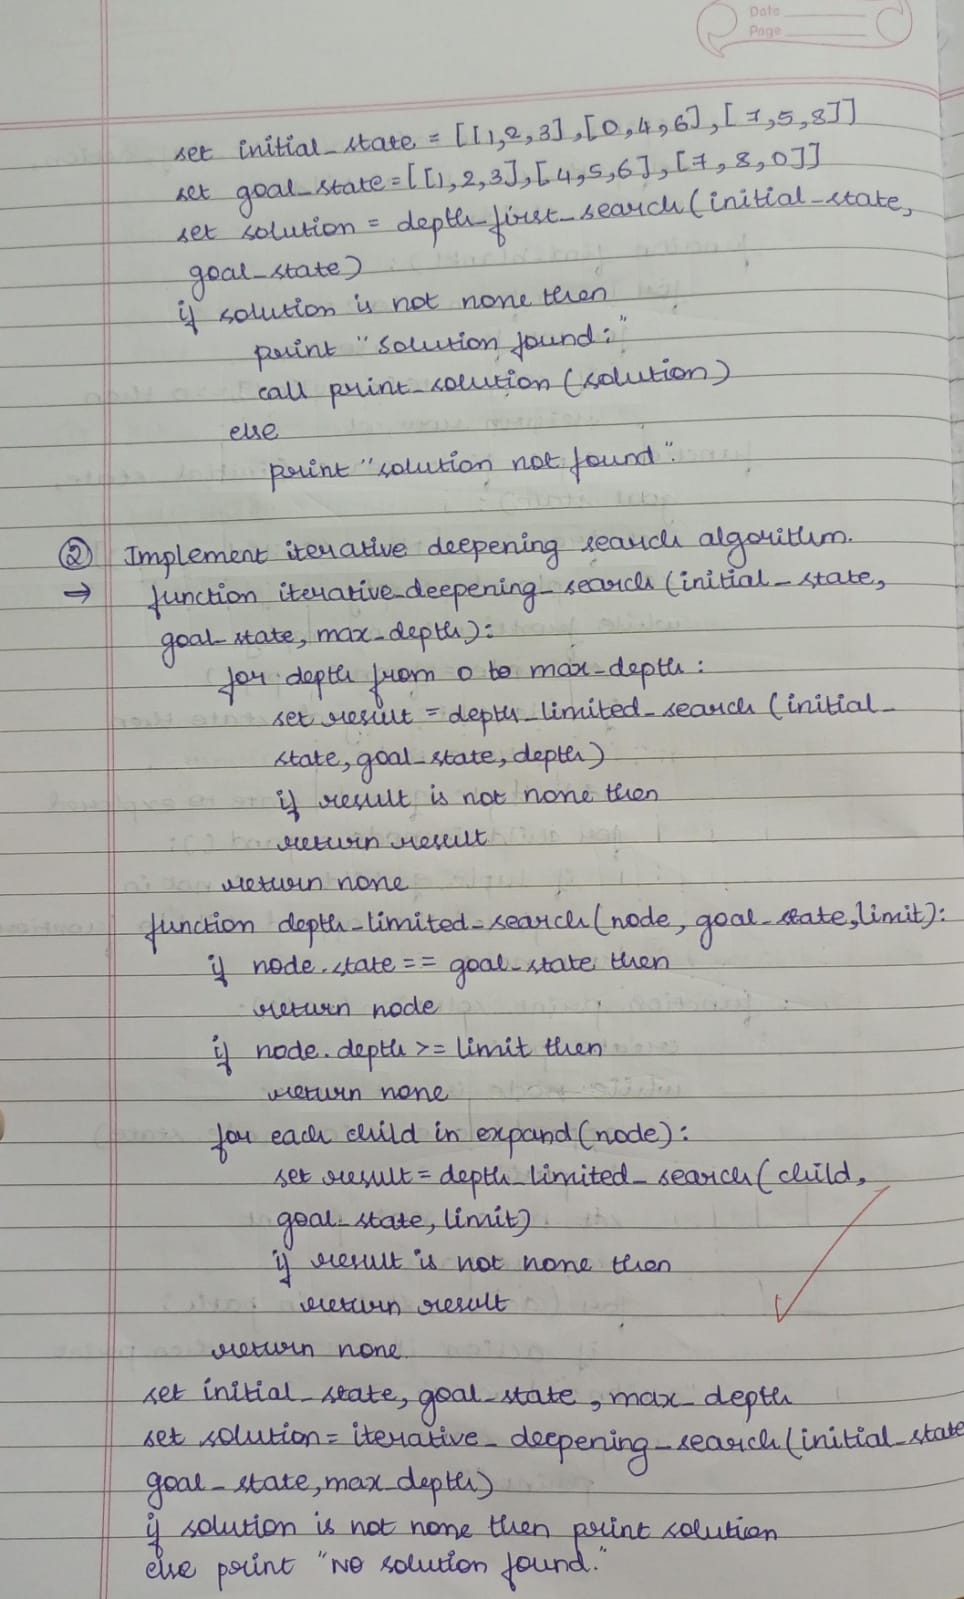 Date
Page
set initial_state = [[1,2,3],[0,4,6],[7,5,8]]
set goal_state=[[1,2,3],[4,5,6],[7,8,0]]
set solution = depth_first_search(initial_state,
goal_state)
if solution is not none then
print "solution found:"
call print_solution(solution)
else
print "solution not found".
② Implement iterative deepening search algorithm.
→ function iterative_deepening_search(initial_state,
goal_state, max_depth):
for depth from 0 to max_depth:
set result = depth_limited_search(initial_
state, goal_state, depth)
if result is not none then
return result
return none
function depth_limited_search(node, goal_state, limit):
if node.state == goal_state then
return node
if node.depth >= limit then
return none
for each child in expand(node):
set result = depth_limited_search(child,
goal_state, limit)
if result is not none then
return result
return none
set initial_state, goal_state, max_depth
set solution = iterative_deepening_search(initial_state
goal_state, max_depth)
if solution is not none then print solution
else print "No solution found."